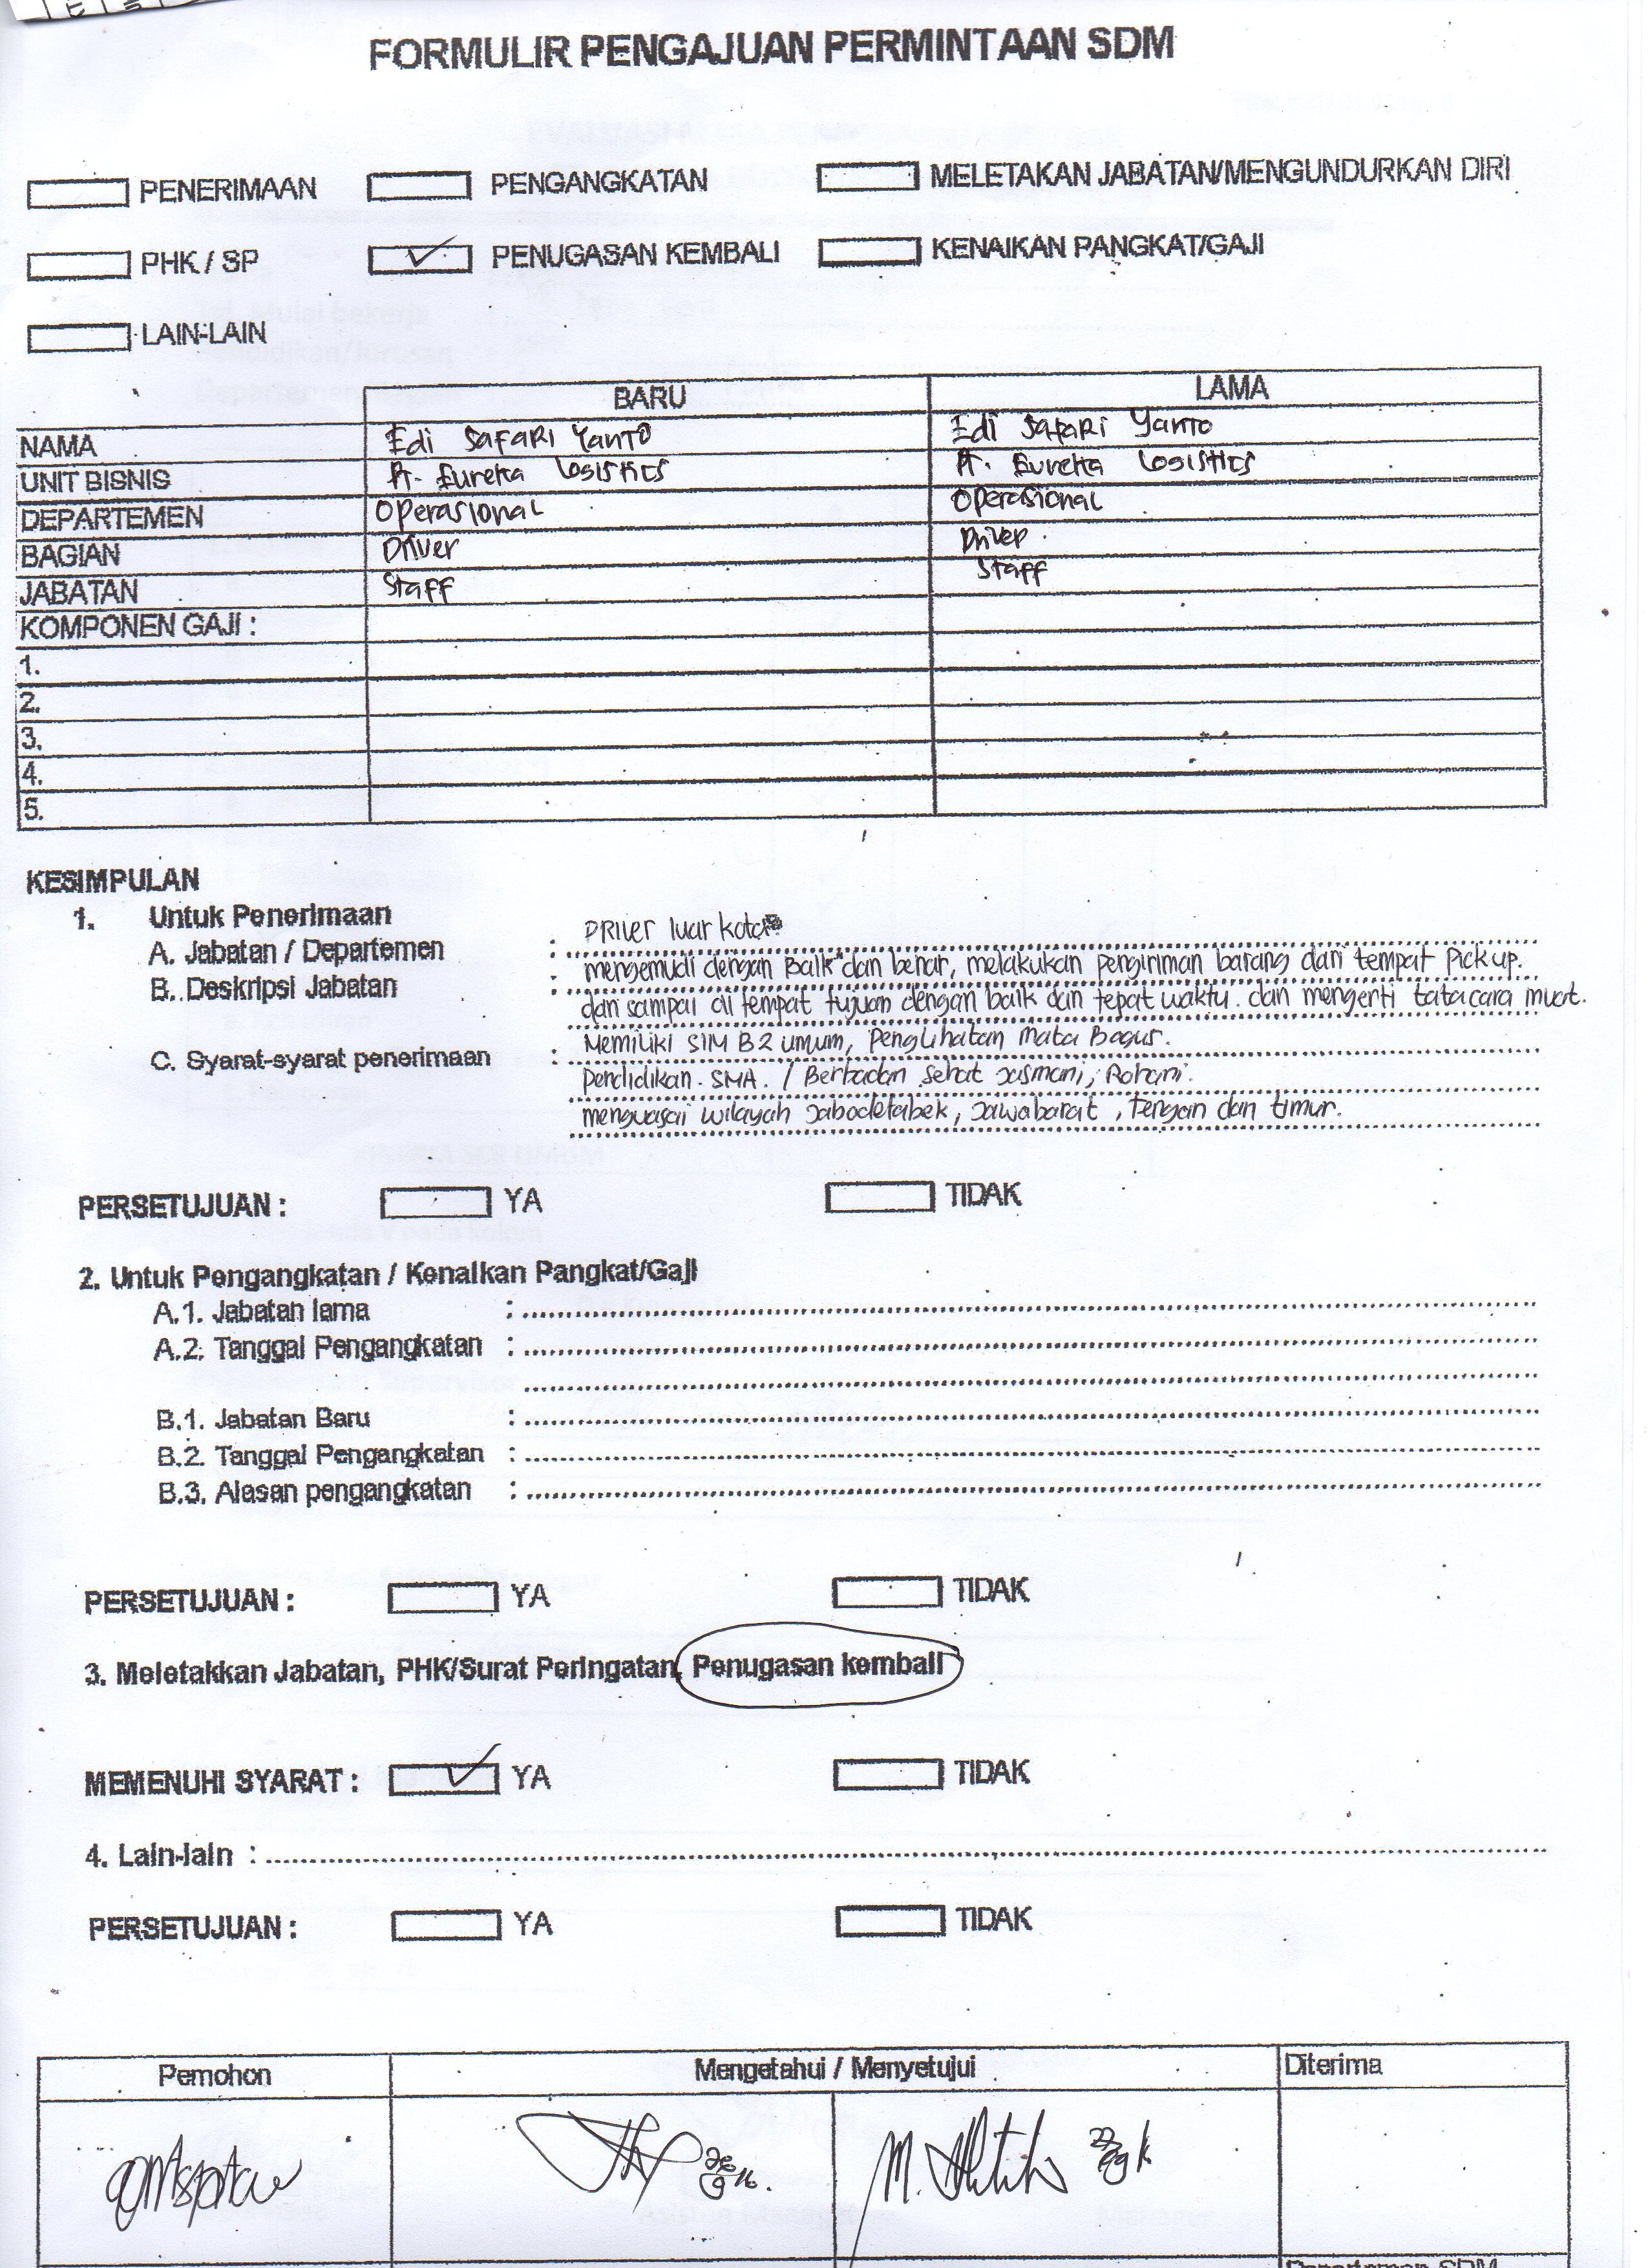 FORMULIR PENGAJUAN PERMINTAAN SDM
PENERIMAAN PENGANGKATAN MELETAKAN JABATAN/MENGUNDURKAN DIRI
PHK / SP PENUGASAN KEMBALI KENAIKAN PANGKAT/GAJI
LAIN-LAIN
BARU LAMA
NAMA Edi Safari Yanto Edi Safari Yanto
UNIT BISNIS Pt. Eureka Logistics Pt. Eureka Logistics
DEPARTEMEN Operasional Operasional
BAGIAN Driver Driver
JABATAN Staff Staff
KOMPONEN GAJI :
1.
2.
3.
4.
5.
KESIMPULAN
1. Untuk Penerimaan
A. Jabatan / Departemen : Driver luar kota
B. Deskripsi Jabatan : mengemudi dengan Baik dan benar, melakukan pengiriman barang dari tempat Pick up.
dan sampai di tempat tujuan dengan baik dan tepat waktu. dan mengerti tatacara muat.
C. Syarat-syarat penerimaan : Memiliki SIM B2 umum, Penglihatan Mata Bagus.
Pendidikan. SMA. / Berbadan Sehat Jasmani, Rohani.
menguasai wilayah Jabodetabek, Jawabarat, tengan dan timur.
PERSETUJUAN : YA TIDAK
2. Untuk Pengangkatan / Kenaikan Pangkat/Gaji
A.1. Jabatan lama :
A.2. Tanggal Pengangkatan :
B.1. Jabatan Baru :
B.2. Tanggal Pengangkatan :
B.3. Alasan pengangkatan :
PERSETUJUAN : YA TIDAK
3. Meletakkan Jabatan, PHK/Surat Peringatan, Penugasan kembali
MEMENUHI SYARAT : YA TIDAK
4. Lain-lain :
PERSETUJUAN : YA TIDAK
Pemohon Mengetahui / Menyetujui Diterima
Departemen SDM